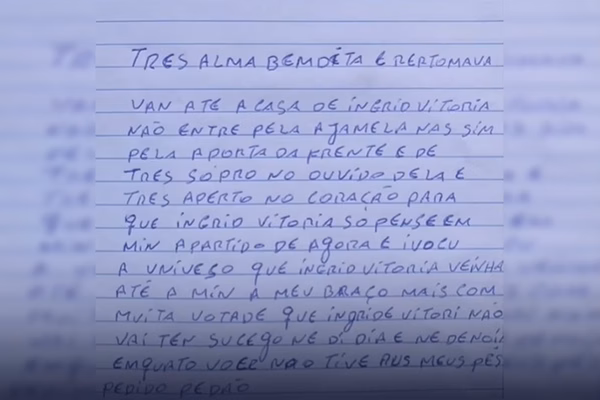 TRES ALMA BEMDITA E RERTOMAVA
VAN ATÉ A CASA DE INGRID VITORIA
NÃO ENTRE PELA AJAMELA NAS SIM
PELA APORTA DA FRENTE E DE
TRES SÓPRO NO OUVIDO DELA E
TRES APERTO NO CORAÇÃO PARA
QUE INGRID VITORIA SÓ PENSE EM
MIN APARTIDO DE AGORA E IVOCU
A UNIVEÇO QUE INGRID VITORIA VENHA
ATÉ A MIN A MEU BRAÇO MAIS COM
MUITA VOTADE QUE INGRIDE VITORI NÃO
VAI TEN SUCEGO NE DI DIA E NE DE NOIE
EMQUATO VOER NAO TIVE AUS MEUS PÉS
PEDIDO PEDRÃO